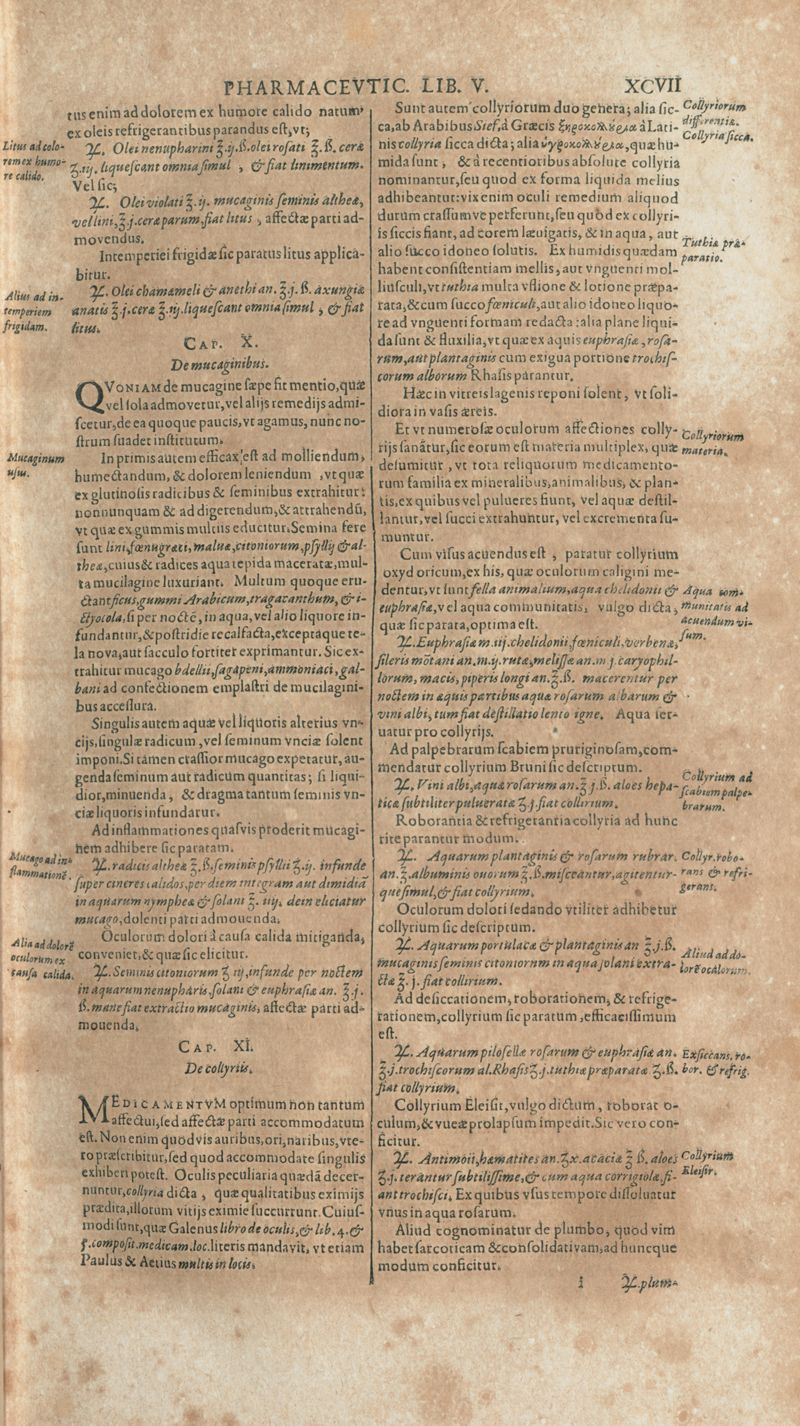 PHARMACEVTIC. LIB. V. XCVII
tus enim ad dolorem ex humore calido natum,
ex oleis refrigerantibus parandus est, vt;
Litus ad colo-
rem ex humo-
re calido.
℞. Olei nenupharini ℥.ij.ß. olei rosati ℥.ß. ceræ
ʒ.iij. liquescant omnia simul, & fiat linimentum.
Vel sic;
℞. Olei violati ℥.ij. mucaginis seminis altheæ,
vel lini, ℥.j. ceræ parum, fiat litus, affectæ parti ad-
movendus.
Intemperiei frigidæ sic paratus litus applica-
bitur.
Alius ad in-
temperiem
frigidam.
℞. Olei chamæmeli & anethi an. ℥.j.ß. axungiæ
anatis ℥.j. ceræ ʒ.iij. liquescant omnia simul, & fiat
litus.
CAP. X.
De mucaginibus.
QVONIAM de mucagine sæpe fit mentio, quæ
vel sola admovetur, vel alijs remedijs admi-
scetur, de ea quoque paucis, vt agamus, nunc no-
strum suadet institutum.
Mucaginum
usus.
In primis autem efficax est ad molliendum,
humectandum, & dolorem leniendum, vt quæ
ex glutinosis radicibus & seminibus extrahitur:
nonnunquam & ad digerendum, & attrahendũ,
vt quæ ex gummis multis educitur. Semina fere
sunt lini, fœnugræci, maluæ, citoniorum, psyllij & al-
theæ, cuius & radices aqua tepida maceratæ, mul-
ta mucilagine luxuriant. Multum quoque eru-
ctant ficus, gummi Arabicum, tragacanthum, & i-
ctyocola, si per noctẽ, in aqua, vel alio liquore in-
fundantur, & postridie recalfacta, exceptaque te-
la nova, aut sacculo fortiter exprimantur. Sic ex-
trahitur mucago bdellii, sagapeni, ammoniaci, gal-
bani ad confectionem emplastri de mucilagini-
bus accessura.
Singulis autem aquæ vel liquoris alterius vn-
cijs, singulæ radicum, vel seminum vnciæ solent
imponi. Si tamen crassior mucago expetatur, au-
genda seminum aut radicum quantitas; si liqui-
dior, minuenda, & dragma tantum seminis vn-
ciæ liquoris infundatur.
Ad inflammationes quasvis proderit mucagi-
nem adhibere sic paratam.
Mucago ad in-
flammationẽ.
℞. radicis altheæ ℥.ß. seminis psyllii ʒ.ij. infunde
super cineres calidos, per diem integram aut dimidiã
in aquarum nympheæ & solani ℥. iiij. dein eliciatur
mucago, dolenti parti admouenda.
Alia ad dolorẽ
oculorum ex
causa calida.
Oculorum dolori à causa calida mitiganda,
conveniet, & quæ sic elicitur.
℞. Seminis citoniorum ʒ iij, infunde per noctem
in aquarum nenupharis, solani & euphrasiæ an. ℥.j.
ß. mane fiat extractio mucaginis, affectæ parti ad-
mouenda.
CAP. XI.
De collyriis.
MEDICAMENTVM optimum non tantum
affectui, sed affectæ parti accommodatum
est. Non enim quodvis auribus, ori, naribus, vte-
ro præscribitur, sed quod accommodate singulis
exhiberi potest. Oculis peculiaria quædã decer-
nuntur, collyria dicta, quæ qualitatibus eximijs
prædita, illorum vitijs eximie succurrunt. Cuius-
modi sunt, quæ Galenus libro de oculis, & lib. 4. &
5. composit. medicam. loc. literis mandavit, vt etiam
Paulus & Aetius multis in locis.
Collyriorum
differentiæ.
Collyria sicca.
Sunt autem collyriorum duo genera; alia sic-
ca, ab Arabibus Sief, à Græcis ξηροκολλύρια à Lati-
nis collyria sicca dicta; alia ὑγροκολλύρια, quæ hu-
mida sunt, & à recentioribus absolute collyria
nominantur, seu quod ex forma liquida melius
adhibeantur: vix enim oculi remedium aliquod
durum crassumve perferunt, seu quod ex collyri-
is siccis fiant, ad torem lævigatis, & in aqua, aut
alio succo idoneo solutis. Ex humidis quædam
habent consistentiam mellis, aut vnguenti mol-
liusculi, vt tuthia multa vstione & lotione præpa-
rata, & cum succo fœniculi, aut alio idoneo liquo-
re ad vnguenti formam redacta: alia plane liqui-
da sunt & fluxilia, vt quæ ex aquis euphrasiæ, rosa-
rum, aut plantaginis cum exigua portione trochis-
corum alborum Rhasis parantur.
Tuthiæ præ-
paratio.
Hæc in vitreis lagenis reponi solent, vt soli-
diora in vasis æreis.
Collyriorum
materia.
Et vt numerosæ oculorum affectiones colly-
rijs sanãtur, sic eorum est materia multiplex, quæ
desumitur, vt tota reliquorum medicamento-
rum familia ex mineralibus, animalibus, & plan-
tis, ex quibus vel pulueres fiunt, vel aquæ destil-
lantur, vel succi extrahuntur, vel excrementa su-
muntur.
Cum visus acuendus est, paratur collyrium
oxydoricum, ex his, quæ oculorum caligini me-
dentur, vt sunt fella animalium, aqua chelidonii &
euphrasiæ, vel aqua communitatis, vulgo dicta,
quæ sic parata, optima est.
Aqua com-
munitatis ad
acuendum vi-
sum.
℞. Euphrasiæ m. iij. chelidonii, fœniculi, verbenæ,
sileris mõtani an. m. ij. rutæ, melissæ an. m j. caryophil-
lorum, macis, piperis longi an. ℥.ß. macerentur per
noctem in æquis partibus aquæ rosarum albarum &
vini albi, tum fiat destillatio lento igne. Aqua ser-
uatur pro collyrijs.
Ad palpebrarum scabiem pruriginosam, com-
mendatur collyrium Bruni sic descriptum.
Collyrium ad
scabiem palpe-
brarum.
℞. Vini albi, aquæ rosarum an. ℥ j.ß. aloes hepa-
ticæ subtiliter pulueratæ ʒ.j. fiat collirium.
Roborantia & refrigerantia collyria ad hunc
rite parantur modum.
Collyr. robo-
rans & refri-
gerans.
℞. Aquarum plantaginis & rosarum rubrar.
an. ℥. albuminis ouorum ℥.ß. misceantur, agitentur-
que simul, & fiat collyrium.
Oculorum dolori sedando vtiliter adhibetur
collyrium sic descriptum.
Aliud ad do-
lorẽ oculorum.
℞. Aquarum portulacæ & plantaginis an ℥.j.ß.
mucaginis seminis citoniorum in aqua solani extra-
ctæ ℥. j. fiat collirium.
Ad desiccationem, roborationem, & refrige-
rationem, collyrium sic paratum, efficacissimum
est.
Exsiccans, ro-
bor. & refrig.
℞. Aquarum pilosellæ rosarum & euphrasiæ an.
℥.j. trochiscorum al. Rhasis ʒ.j. tuthiæ præparatæ ʒ.ß.
fiat collyrium.
Collyrium Eleisir, vulgo dictum, roborat o-
culum, & vueæ prolapsum impedit. Sic vero con-
ficitur.
Collyrium
Eleisir.
℞. Antimoii, hæmatites an. ʒ x. acaciæ ℥ ß. aloes
ʒ.j. terantur subtilissime, & cum aqua corrigiolæ, fi-
ant trochisci. Ex quibus vsus tempore dissoluatur
vnus in aqua rosarum.
Aliud cognominatur de plumbo, quod vim
habet sarcoticam & consolidativam, ad huncque
modum conficitur.
i ℞. plum-